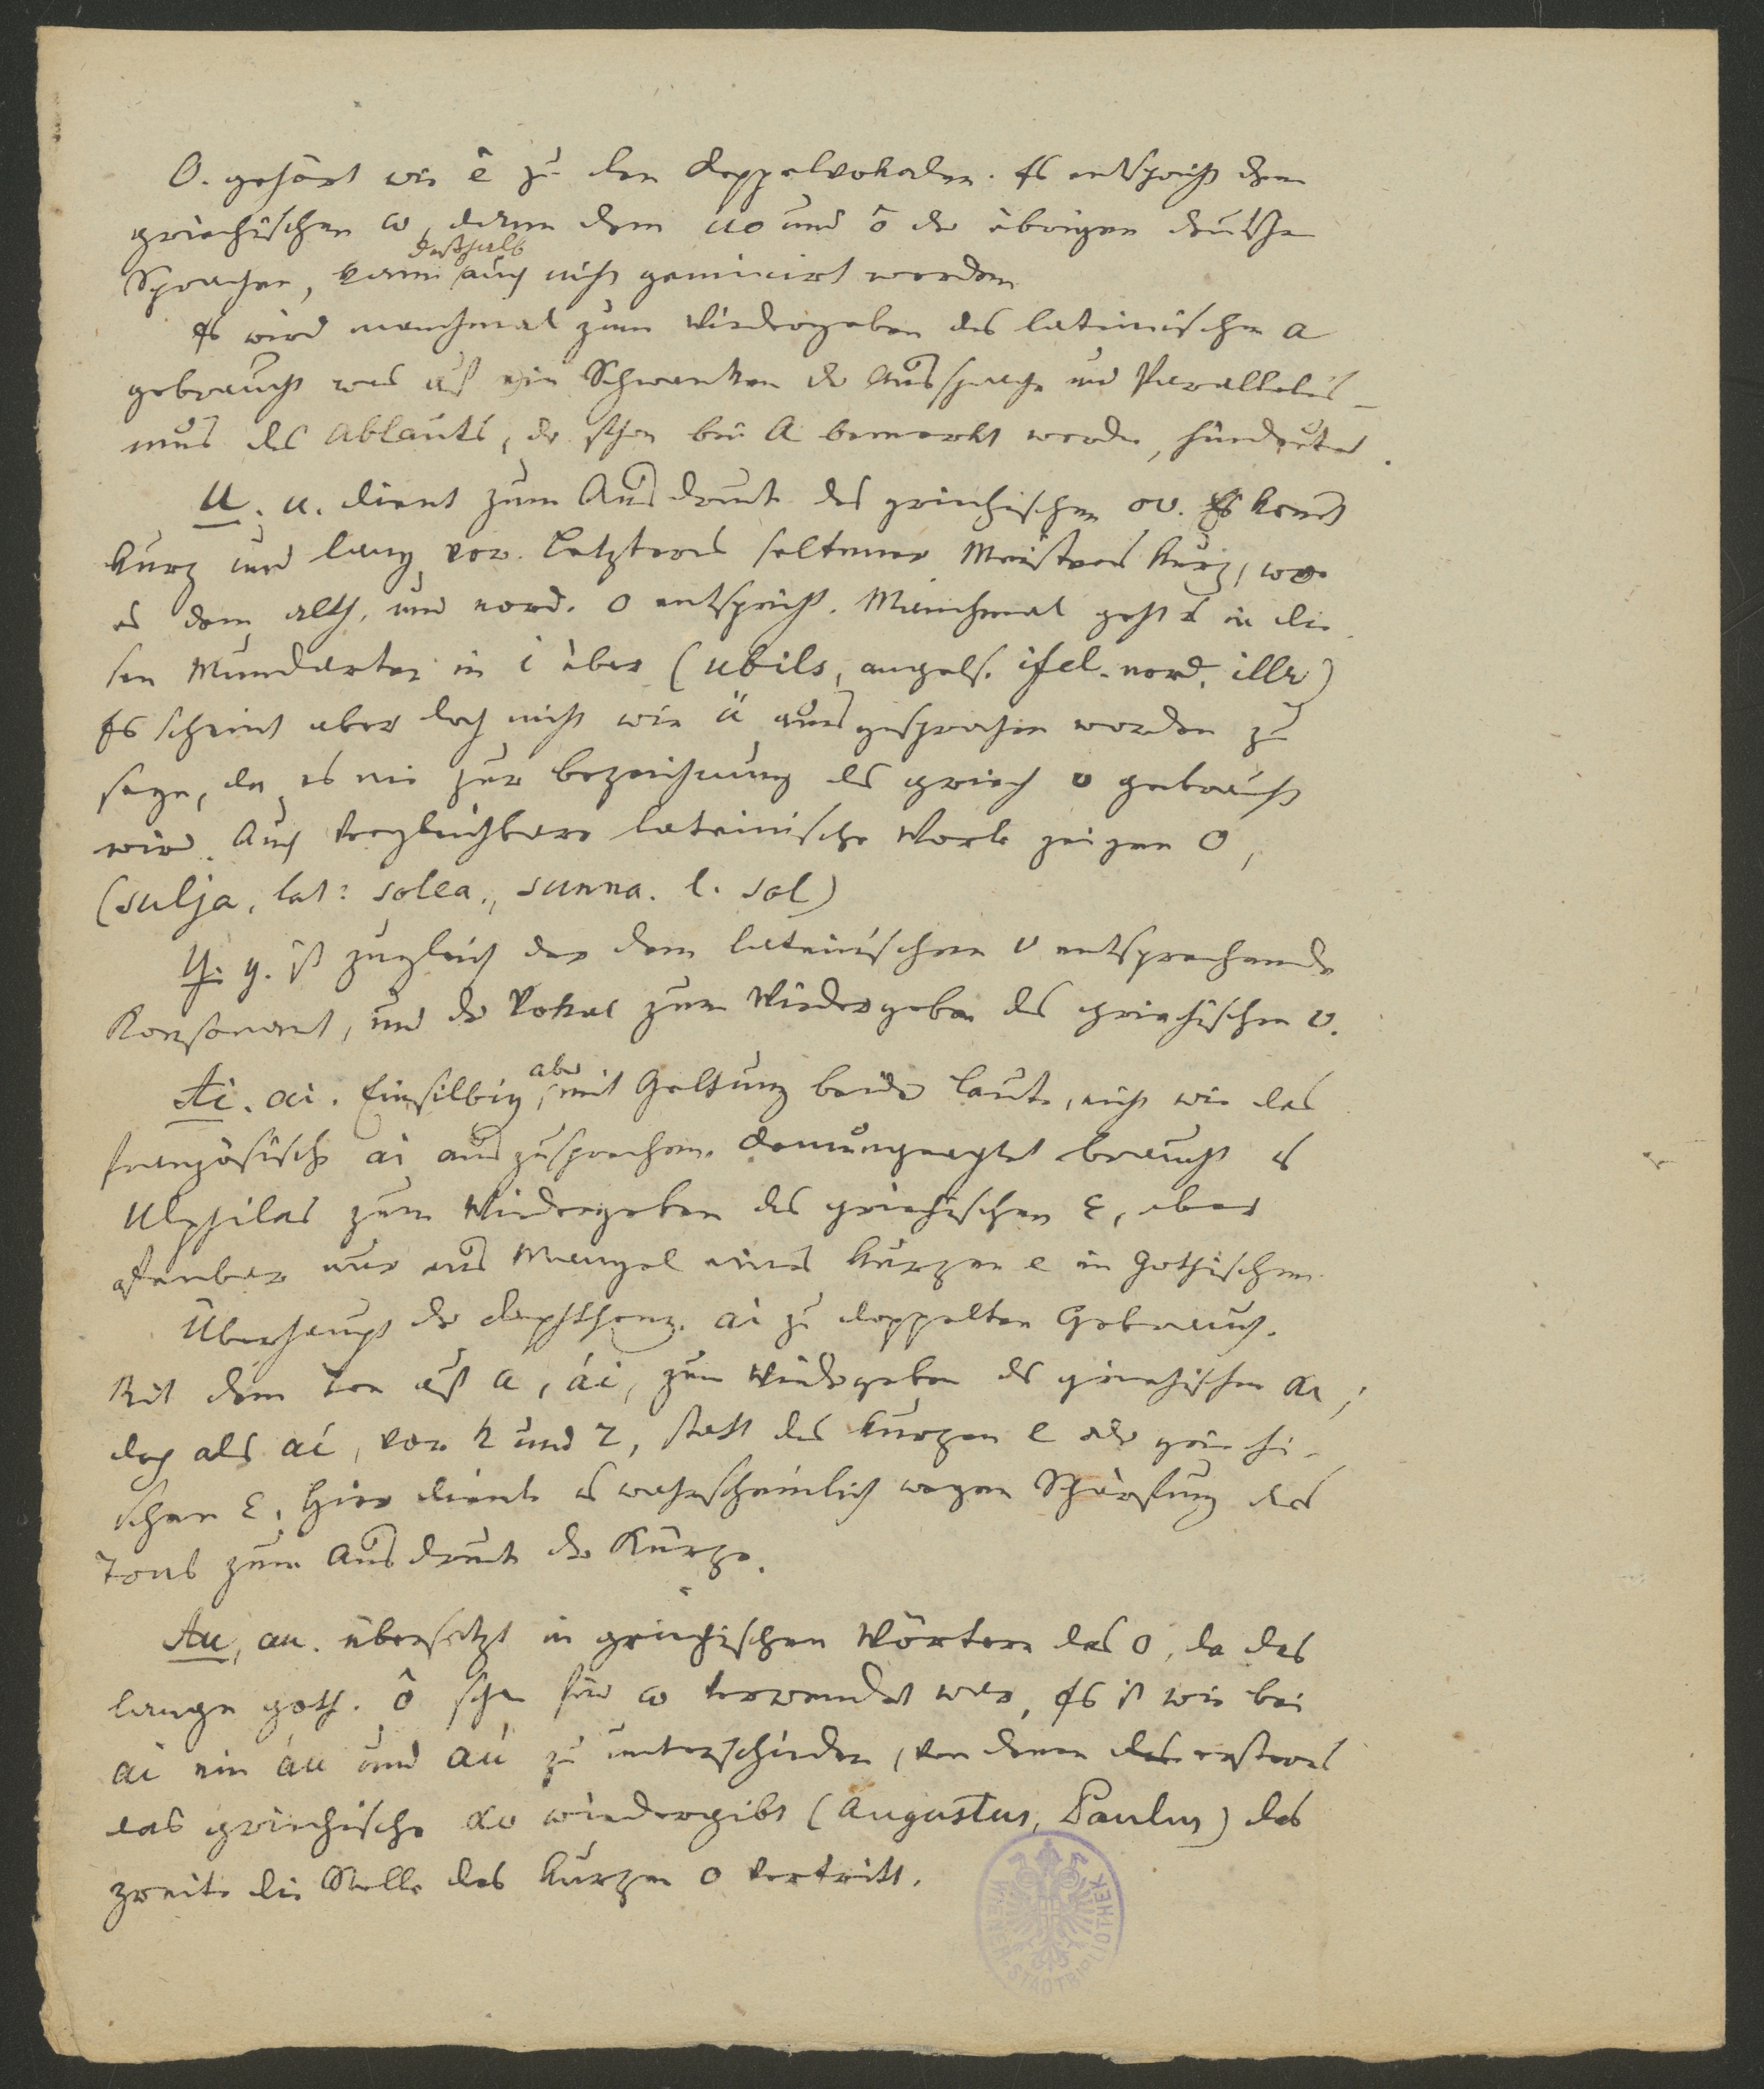 O. gehört wie ê zu den Doppelvokalen. Es entspricht dem
griechischen ω, dann dem uo und ô der übrigen deutschen
deßhalb
Sprachen, kann auch nicht geminirt werden
Es wird manchmal zum Wiedergeben des lateinischen a
gebraucht was auf ein Schwanken der Aussprache und Parallelis-
mus des Ablauts, der schon bei A bemerkt worden, hindeutet.
U. u. dient zum Ausdruck des griechischen ου. Es kommt
kurz und lang vor. Letzteres seltener Meistens kurz, wo
es dem alth. und nord. o entspricht. Manchmal geht es in die-
sen Mundarten in i über (ubils, angels. ifel. nord. illr)
Es scheint aber doch nicht wie ü ausgesprochen worden zu
seyn, da es nie zur bezeichnung des griech υ gebraucht
wird. Auch vergleichbare lateinische Worte zeigen O,
(sulja, lat: solea., sunna. l. sol)
Y. y. ist zugleich der dem lateinischen v entsprechende
Konsonant, und der Vokal zum Wiedergeben des griechischen υ.
aber
Ai. ai. Einsilbig, mit Geltung beider Laute, nicht wie das
französische ai auszusprechen. Demungeachtet braucht es
Ulphilas zum Wiedergeben des griechischen ε, aber
offenbar nur aus Mangel eines kurzen e im Gothischen.
Überhaupt der Diphthong. ai zu doppelten Gebrauch.
Mit dem Ton auf a, ái, zum Wiedergeben des griechischen αι;
doch als aí, vor h und r, statt des kurzen e oder griechi-
schen ε. Hier diente es wahrscheinlich wegen Schärfung des
Tons zum Ausdruck der Kürze.
Au, au. übersetzt in griechischen Wörtern das o, da das
lange goth. ô schon für ω verwendet war, Es ist wie bei
ai ein áu und aú zu unterscheiden, von denen das erstere
das griechische αυ wiedergibt (Augustus, Paulus) das
zweite die Stelle des kurzen o vertritt.
WIENER STADTBIBLIOTHEK